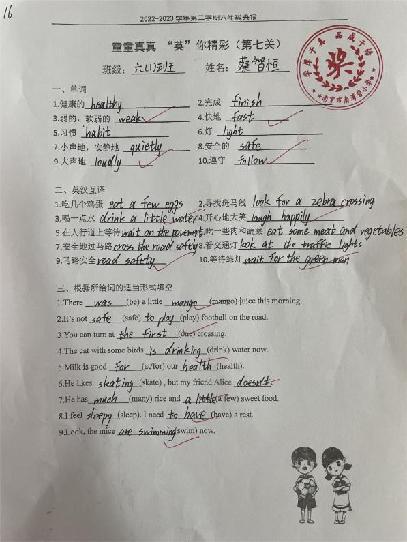 16
2022-2023学年第二学期六年级英语
童童真真 “英”你精彩（第七关）
班级: 六(1)班 姓名: 蔡智恒
奖
一、单词
1.健康的 healthy 2.完成 finish
3.弱的、软弱的 weak 4.快地 fast
5.习惯 habit 6.灯 light
7.小声地、安静地 quietly 8.安全的 safe
9.大声地 loudly 10.遵守 follow
二、英汉互译
1.吃几个鸡蛋 eat a few eggs 2.寻找斑马线 look for a zebra crossing
3.喝一点水 drink a little water 4.开心地大笑 laugh happily
5.在人行道上等待 wait on the pavement 6.吃一些肉和蔬菜 eat some meat and vegetables
7.安全地过马路 cross the road safely 8.看交通灯 look at the traffic lights
9.马路安全 road safety 10.等待绿灯 wait for the green man
三、根据所给词的适当形式填空
1.There was (be) a little mango (mango) juice this morning.
2.It's not safe (safe) to play (play) football on the road.
3.You can turn at the first (one) crossing.
4.The cat with some birds is drinking (drink) water now.
5.Milk is good for (to/for) our health (health).
6.He likes skating (skate), but my friend Alice doesn't.
7.He has much (many) rice and a little (a few) sweet food.
8.I feel sleepy (sleep). I need to have (have) a rest.
9.Look, the mice are swimming (swim) now.